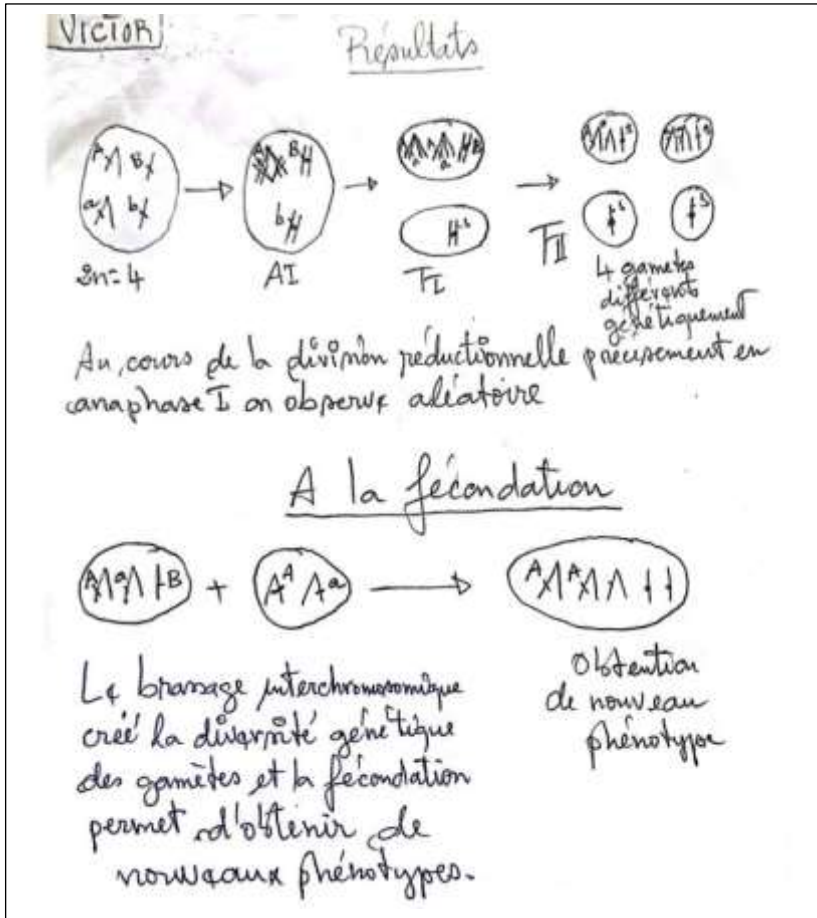 VICTOR
Résultats
A B
a b
2n=4
A B
b
AI
B
a a
b
TI
TII
b b
4 gametes
différents
génétiquement
Au cours de la division réductionnelle précisement en
anaphase I on observe aléatoire
A la fécondation
A a B + A a
A A
Le brassage interchromosomique
créé la diversité génétique
des gamètes et la fécondation
permet d'obtenir de
nouveaux phénotypes.
Obtention
de nouveau
phénotype